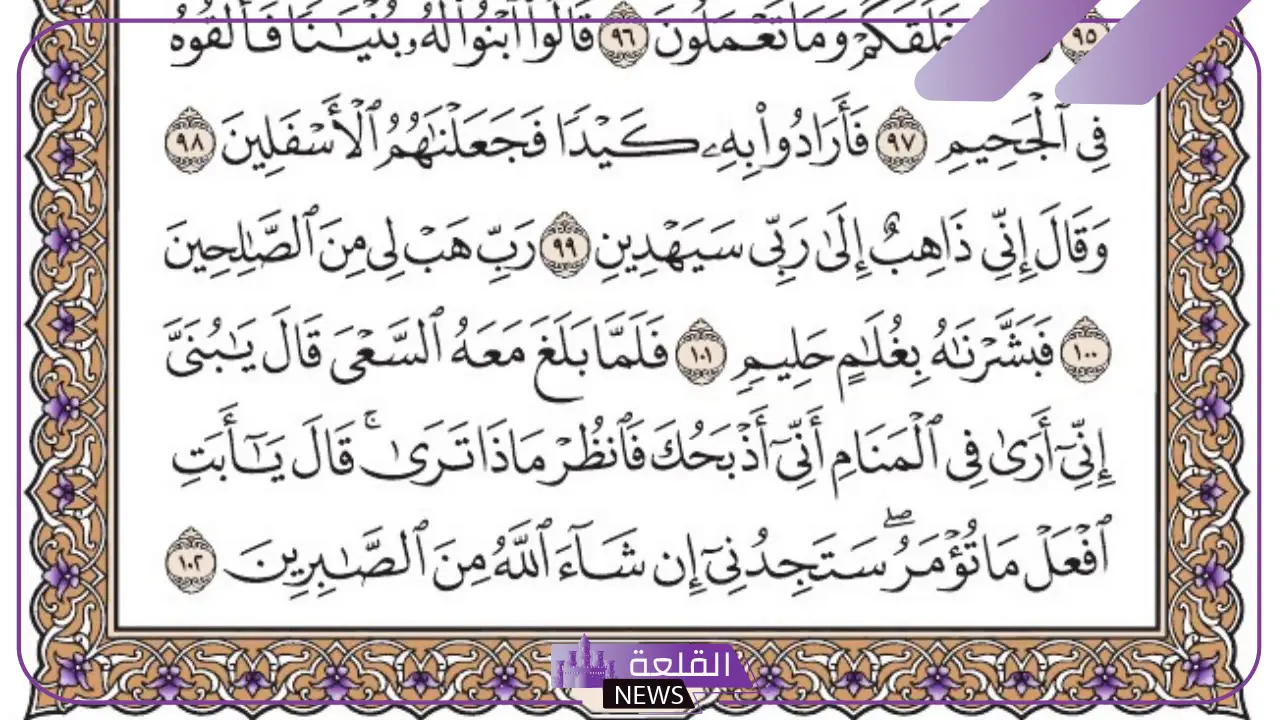 ٩٥ خَلَقَكُمْ وَمَا تَعْمَلُونَ ٩٦ قَالُوا۟ ٱبْنُوا۟ لَهُۥ بُنْيَـٰنًا فَأَلْقُوهُ
فِى ٱلْجَحِيمِ ٩٧ فَأَرَادُوا۟ بِهِۦ كَيْدًا فَجَعَلْنَـٰهُمُ ٱلْأَسْفَلِينَ ٩٨
وَقَالَ إِنِّى ذَاهِبٌ إِلَىٰ رَبِّى سَيَهْدِينِ ٩٩ رَبِّ هَبْ لِى مِنَ ٱلصَّـٰلِحِينَ
١٠٠ فَبَشَّرْنَـٰهُ بِغُلَـٰمٍ حَلِيمٍ ١٠١ فَلَمَّا بَلَغَ مَعَهُ ٱلسَّعْىَ قَالَ يَـٰبُنَىَّ
إِنِّىٓ أَرَىٰ فِى ٱلْمَنَامِ أَنِّىٓ أَذْبَحُكَ فَٱنظُرْ مَاذَا تَرَىٰ ۚ قَالَ يَـٰٓأَبَتِ
ٱفْعَلْ مَا تُؤْمَرُ ۖ سَتَجِدُنِىٓ إِن شَآءَ ٱللَّهُ مِنَ ٱلصَّـٰبِرِينَ ١٠٢
القلعة
NEWS